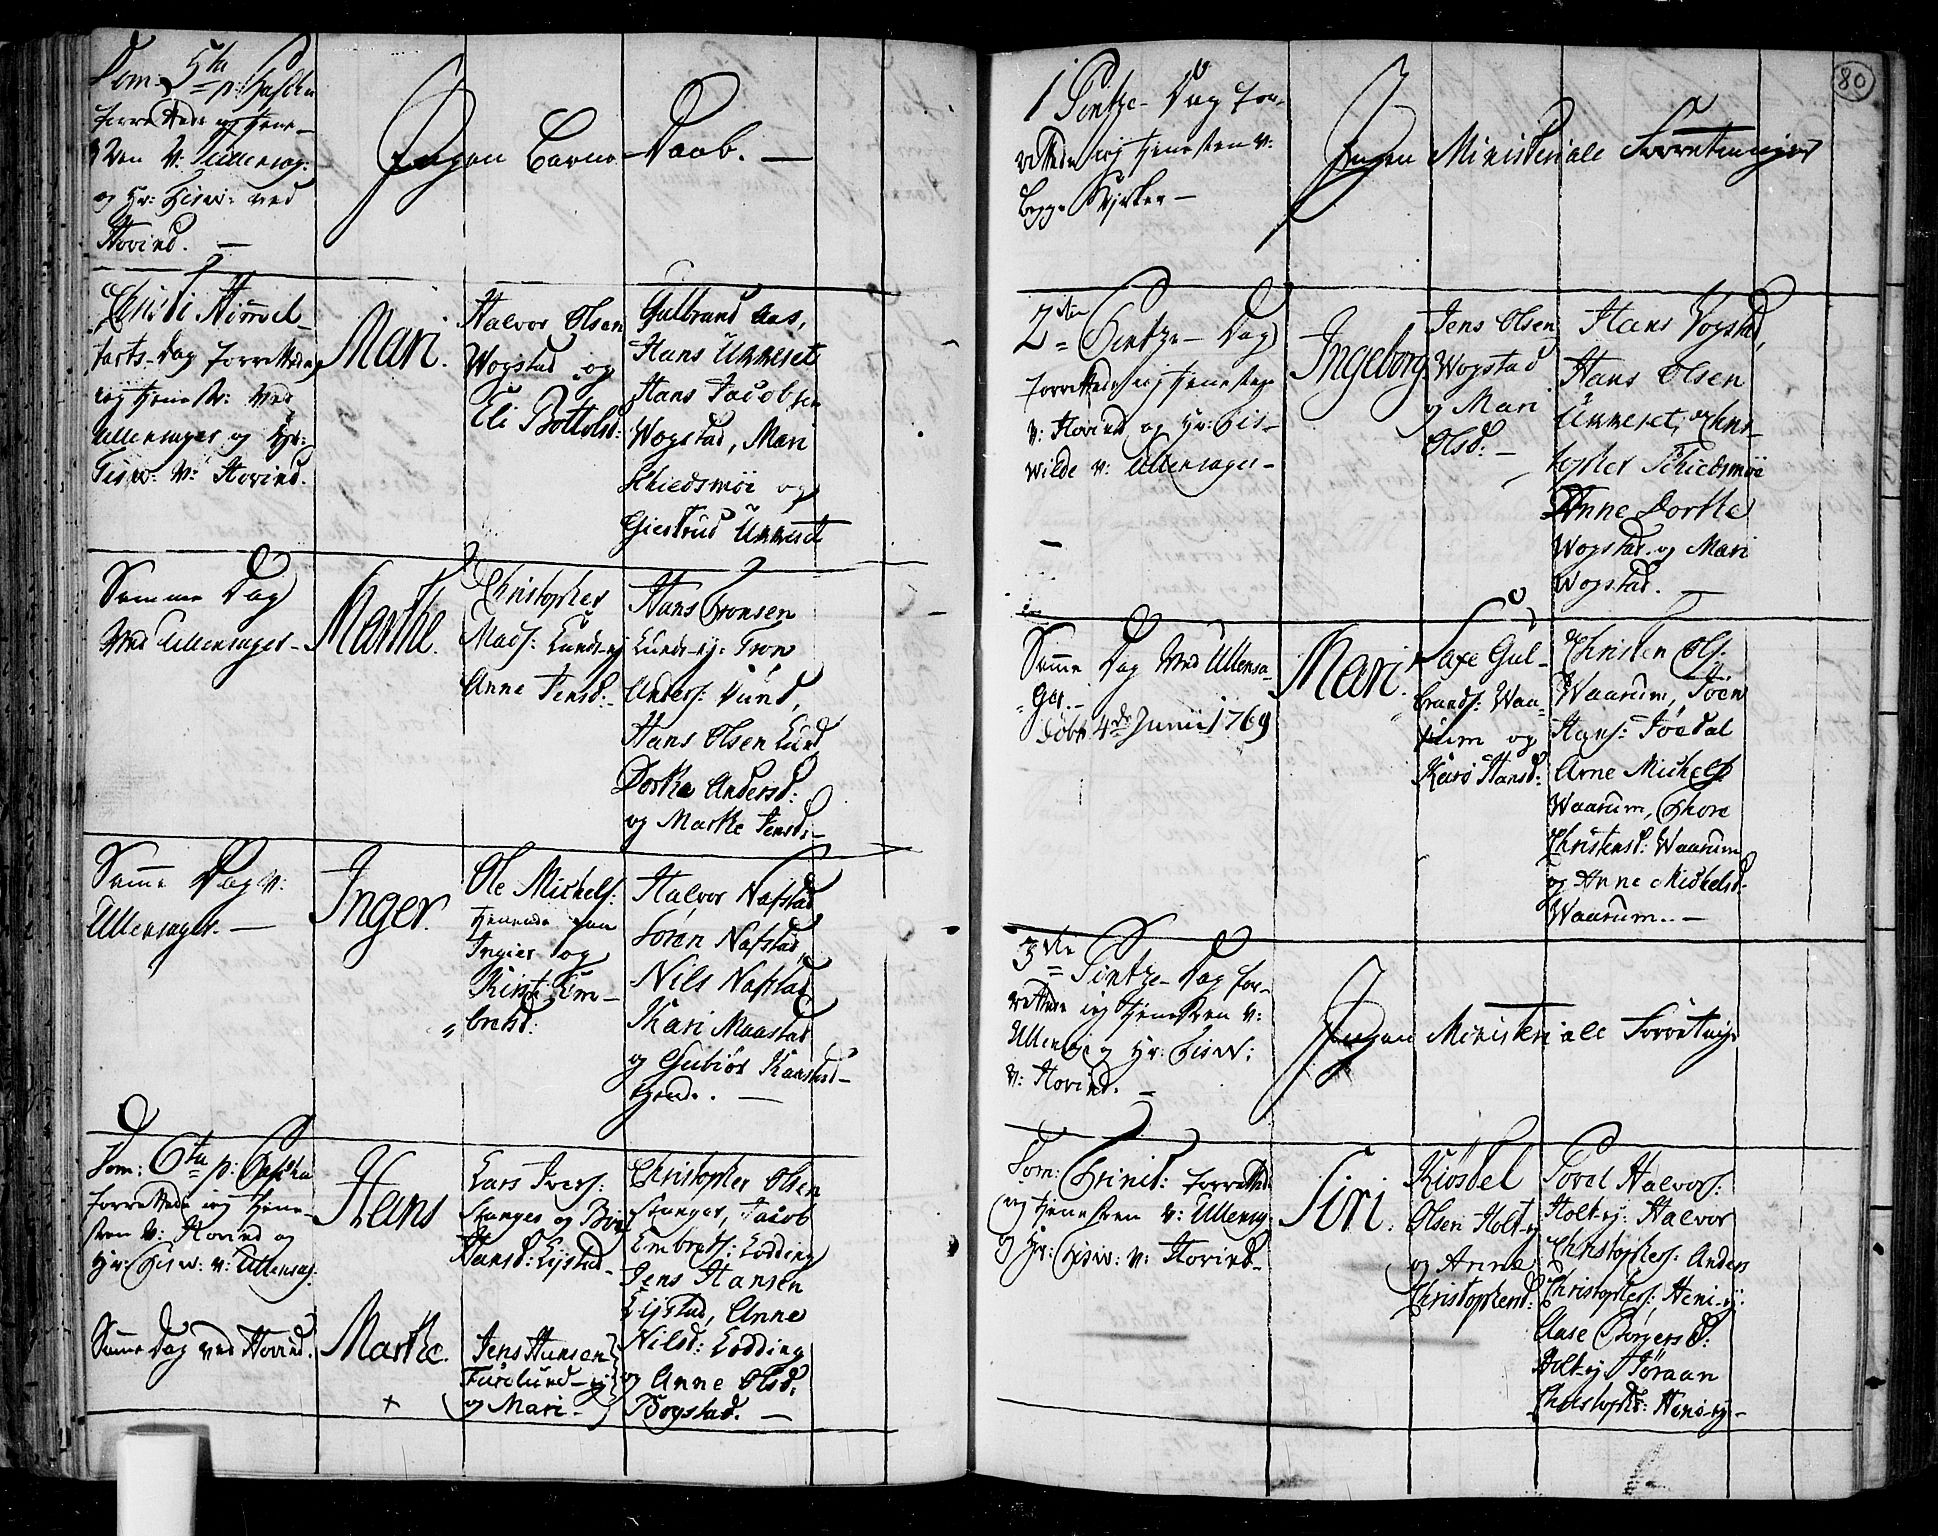 Dom: 5ta
p: Pascha
forrettede ieg tiene-
sten v: Ullensag:
og Hr: Tisw: ved
Hovind. —
Ingen Barne-Daab. —
Christi Himmel-
farts-Dag forrettede
ieg tienest: ved
Ullensager og Hr:
Tisw: v: Hovind.
Mari.
Halvor Olsen
Wogstad og
Eli Bottolsd:
Gulbrand Aas,
Hans Ukkeset
Hans Jacobsen
Wogstad, Mari
Schiedsmöe og
Giertrud Ukkeset
Samme Dag
ved Ullensager-
Marthe.
Christopher
Mads: Lunds-ej
Anne Jensd:-
Hans Tronsen
Lunds-ej: Tron
Anders: Lund,
Hans Olsen Lund
Dorthe Andersd:
og Marthe Jensd:-
Samme Dag v:
Ullensager. —
Inger.
Ole Michels:
tienende paa
Ingier og
Kirsti Em-
bretsd:
Halvor Nafstad
Soren Nafstad,
Nils Nafstad
Kari Maastad
og Gubiör
tiend. —
Dom: 6ta p: Pascha
forrettede ieg tiene-
sten v: Hovind og
Hr: Tisw: v: Ullensag:
Hans
Lars Ivers:
Stanger og
Hansd: Lystad-
Christopher Olsen
Stanger, Jacob
Embrets: Lodding
Jens Hansen
Lystad, Anne
Nilsd: Lodding
og Anne Olsd:
Bogstad. —
Samme Dag ved Hovind.
Marthe.
+
Jens Hansen
Furulund-ej
og Mari-
80
1 Pintze-Dag for-
rettede ieg tienesten v:
begge Kirker —
Ingen Ministeriale Forretninger
2den Pintze-Dag
forrettede ieg tienesten
v: Hovind og Hr: Tis-
wilde v: Ullensager-
Ingeborg
Jens Olsen
Wogstad
og Mari
Olsd: —
Hans Wogstad,
Hans Olsen
Ukkeset, og Chri-
stopher Schiedsmöe
Anne Dorthe
Wogstad og Mari
Wogstad. —
Samme Dag ved Ullensa-
ger.
döbt 4de Junii 1769
Mari.
Saxe Gul-
brands: Waa-
rum og
Kari Hansd:
Christen Ols:
Waarum, Joen
Hans: Joedal
Arne Michels:
Waarum, Thore
Christensd: Waarum
og Anne Michelsd:
Waarum. —
3die Pintze-Dag for-
rettede ieg tienesten v:
Ullens: og Hr: Tisw:
v: Hovind. —
Ingen Ministeriale Forretning
Dom: Trinit: forrettede
ieg tienesten v: Ullensag:
og Hr: Tisw: v: Hovind-
Siri.
Kiöstel
Olsen Holt-ej
og Anne
Christophersd:
Povel Halvors:
Holt-ej: Halvor
Christophers: Anders
Christophers: Heni-ej:
Aase Börgersd:
Holt-ej Jöraan
Christophersd: Heni-ej:-